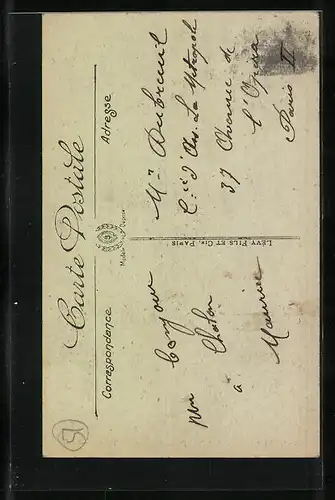 Carte Postale
Correspondance
Adresse
Modèle Déposé
LÉVY FILS ET CIE, PARIS
bonjour
Chalon
à
Maurice
Mr Dubreuil
Cie d'Ass. La Métropole
37 Avenue de
l'Opéra
Paris II
51